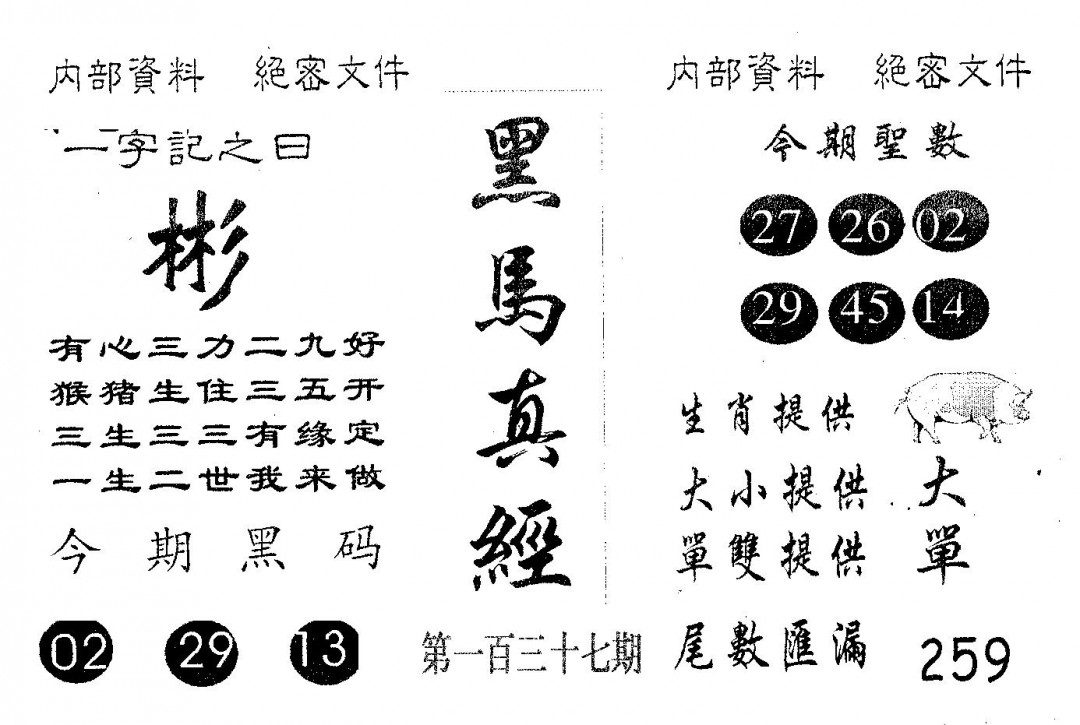 内部資料 絕密文件
一字記之曰
彬
有心三力二九好
猴猪生住三五开
三生三三有缘定
一生二世我来做
今期黑码
02 29 13
黑馬真經
第一百三十七期
内部資料 絕密文件
今期聖數
27 26 02
29 45 14
生肖提供
大小提供 大
單雙提供 單
尾數匯漏 259